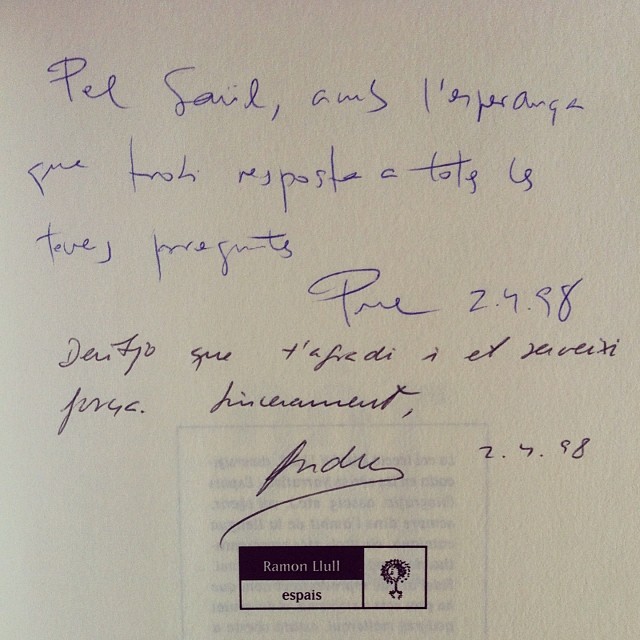 Pel Saül, amb l'esperança
que trobi resposta a totes les
teves preguntes
2.4.98
Desitjo que t'agradi i et serveixi
força. Sincerament,
2.4.98
Ramon Llull
espais